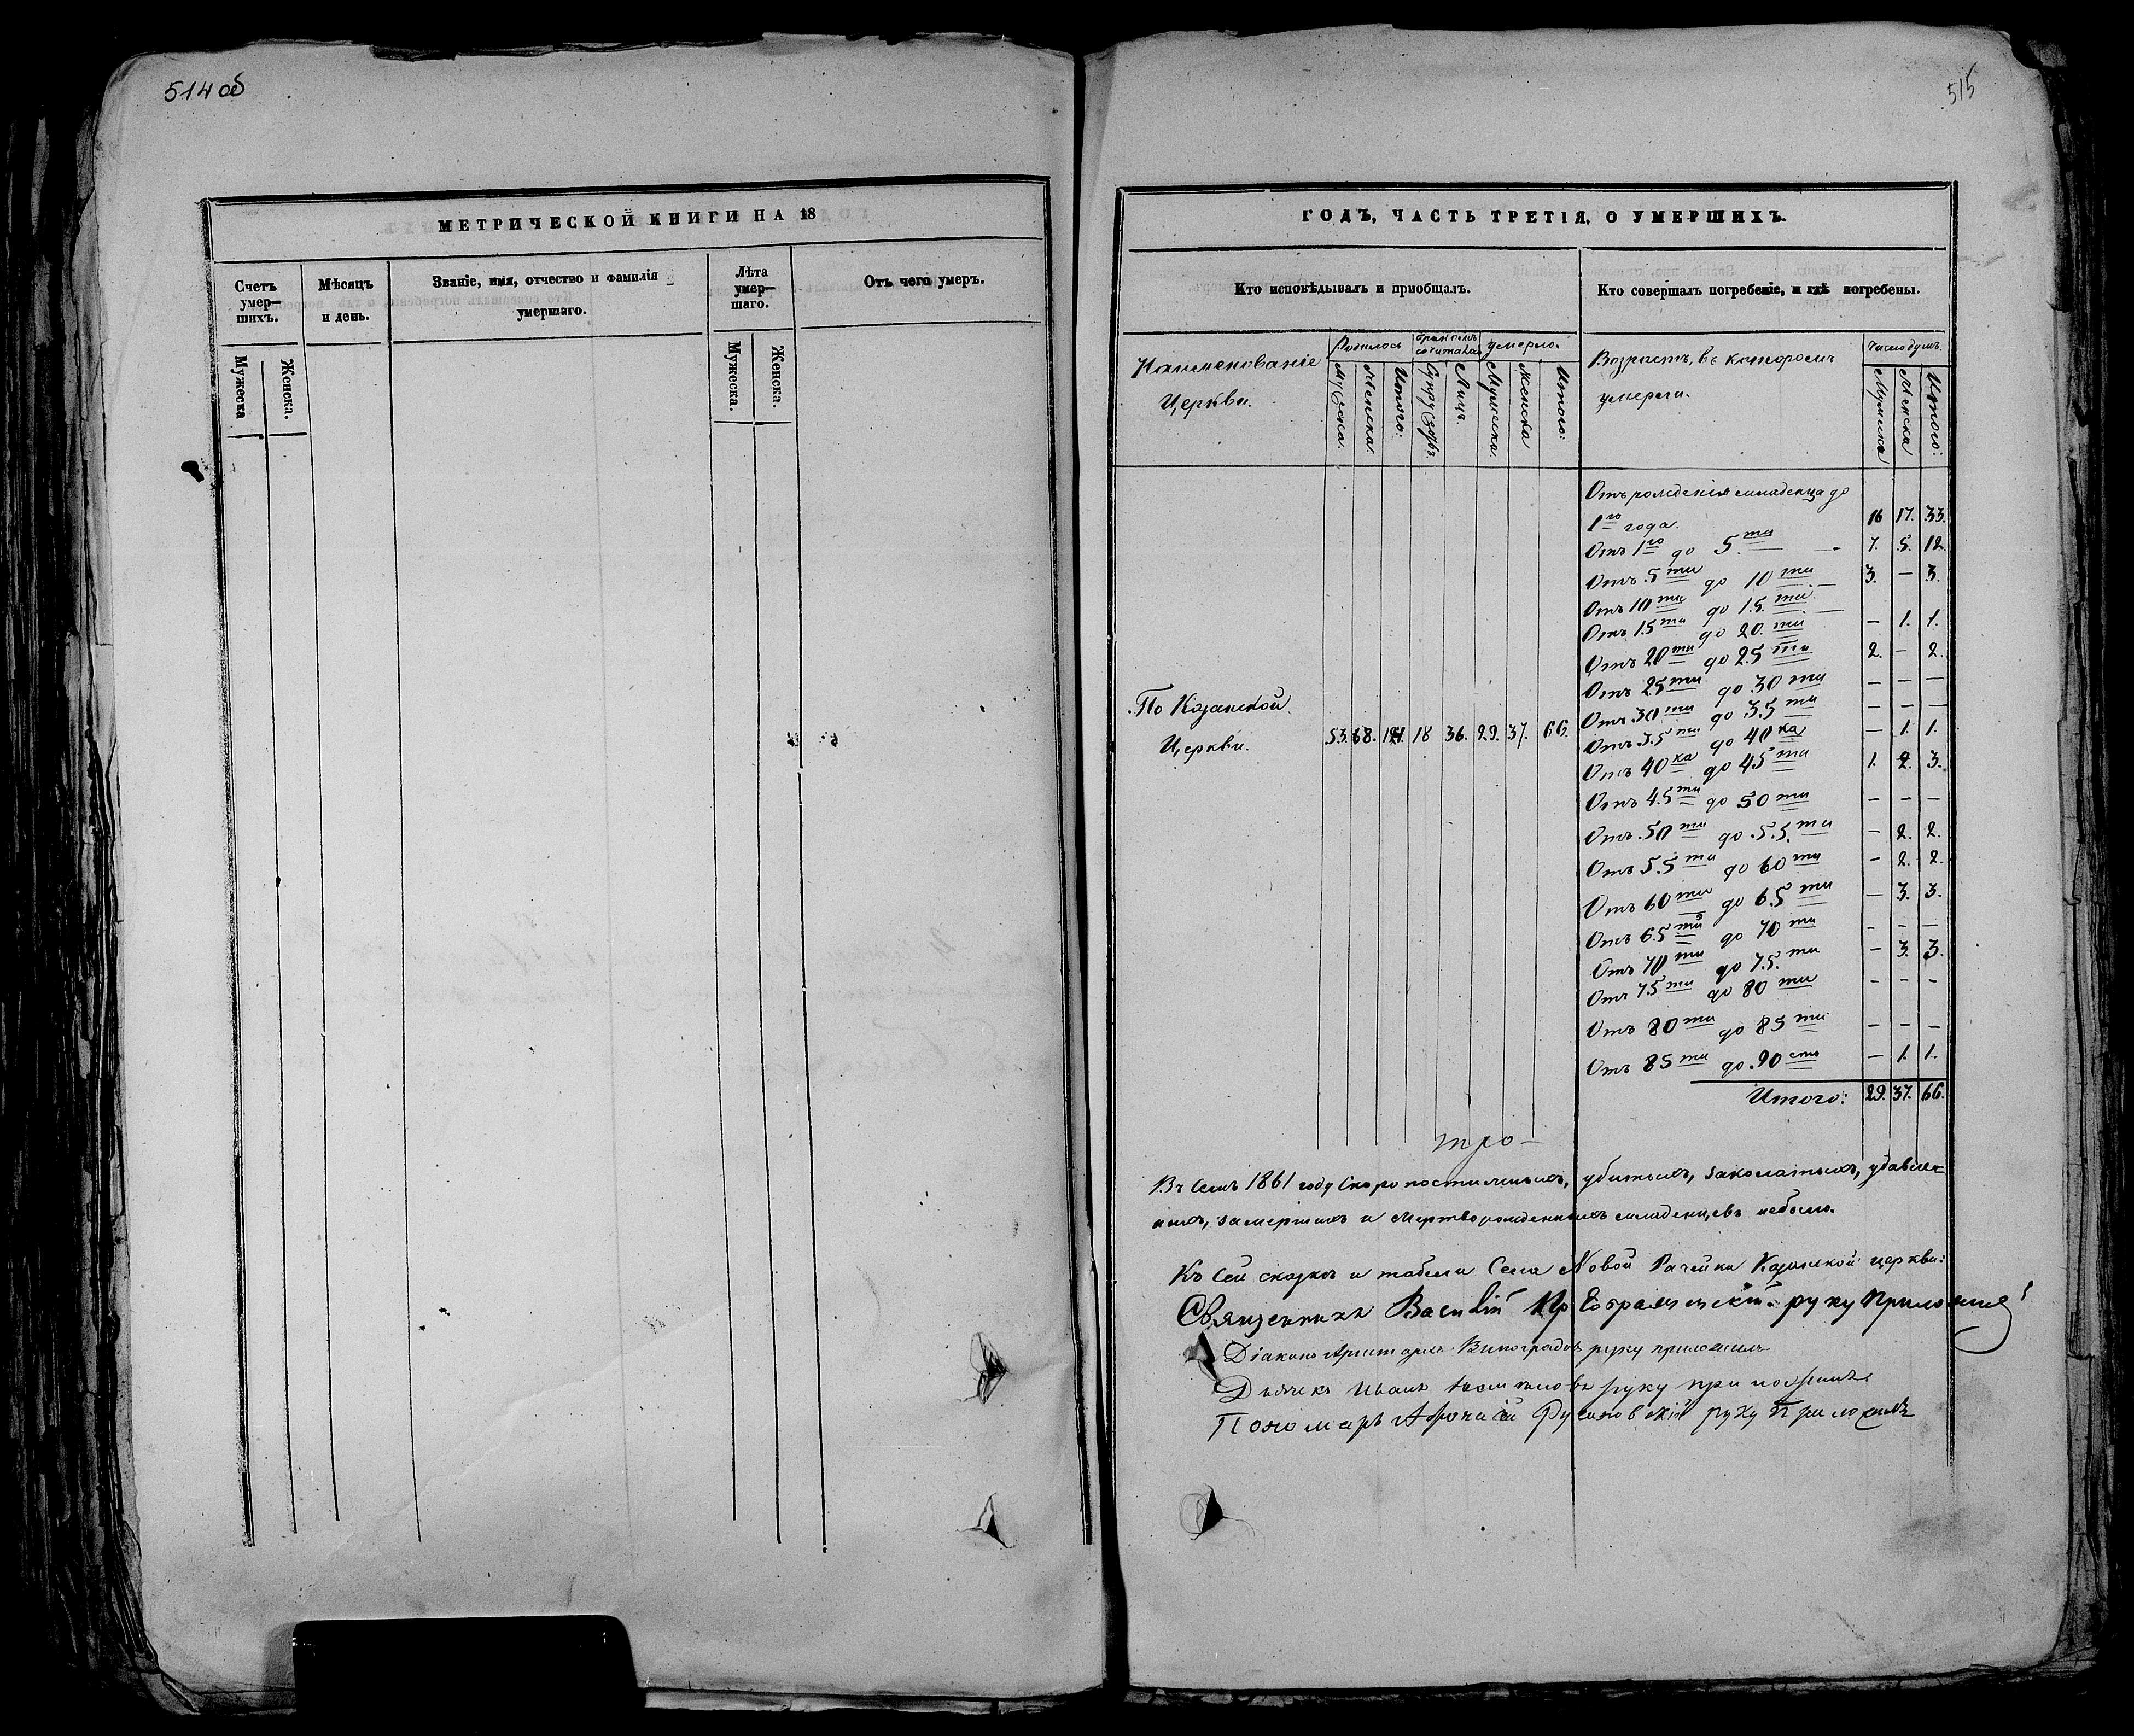 514 об
МЕТРИЧЕСКОЙ КНИГИ НА 18
Счетъ умер–шихъ.
Мужеска
Женска.
Мѣсяцъ и день.
Званіе, имя, отчество и фамилія умершаго.
Лѣта умер–шаго.
Мужеска.
Женска.
Отъ чего умеръ.
515
ГОДЪ, ЧАСТЬ ТРЕТІЯ, О УМЕРШИХЪ.
Кто исповѣдывалъ и приобщалъ.
Кто совершалъ погребеніе, и гдѣ погребены.
Наименованіе Церкви.
Родилось
Мужеска.
Женска.
Итого:
бракомъ сочеталось
Супружествъ
Лицъ.
умерло.
Мужеска.
Женска
Итого:
Возрастъ, въ которомъ умерли.
Число душъ.
Мужеска
Женска
Итого:
Отъ рожденія младенца до
1го года. 16 17. 33.
Отъ 1го до 5.ти 7. 5. 12.
Отъ 5ти до 10ти 3. — 3.
Отъ 10ти до 15.ти
Отъ 15ти до 20.ти — 1. 1.
Отъ 20ти до 25ти 2. — 2.
Отъ 25ти до 30ти — — —
Отъ 30ти до 35ти — — —
Отъ 35ти до 40ка — 1. 1.
Отъ 40ка до 45ти 1. 2. 3.
Отъ 45ти до 50ти — — —
Отъ 50ти до 55.ти — 2. 2.
Отъ 55ти до 60ти — 2. 2.
Отъ 60ти до 65ти — 3. 3.
Отъ 65ти до 70ти — — —
Отъ 70ти до 75.ти — 3. 3.
Отъ 75ти до 80ти — — —
Отъ 80ти до 85ти — — —
Отъ 85ти до 90сто — 1. 1.
Итого: 29. 37. 66.
По Казанской
Церкви. 53. 68. 121. 18 36. 29. 37. 66.
Въ семъ 1861 году скоропостижныхъ, убитыхъ, заколатыхъ, удавлен
ныхъ, замершихъ и мертворожденныхъ младенцевъ небыло.
Къ сей сказкѣ и табели Села Новой Рачейки Казанской церкви:
Священникъ Василій Преображенскій руку приложилъ
Діаконъ Виноградовъ руку приложилъ
Дьячекъ Иванъ руку приложилъ
Пономарь руку приложилъ